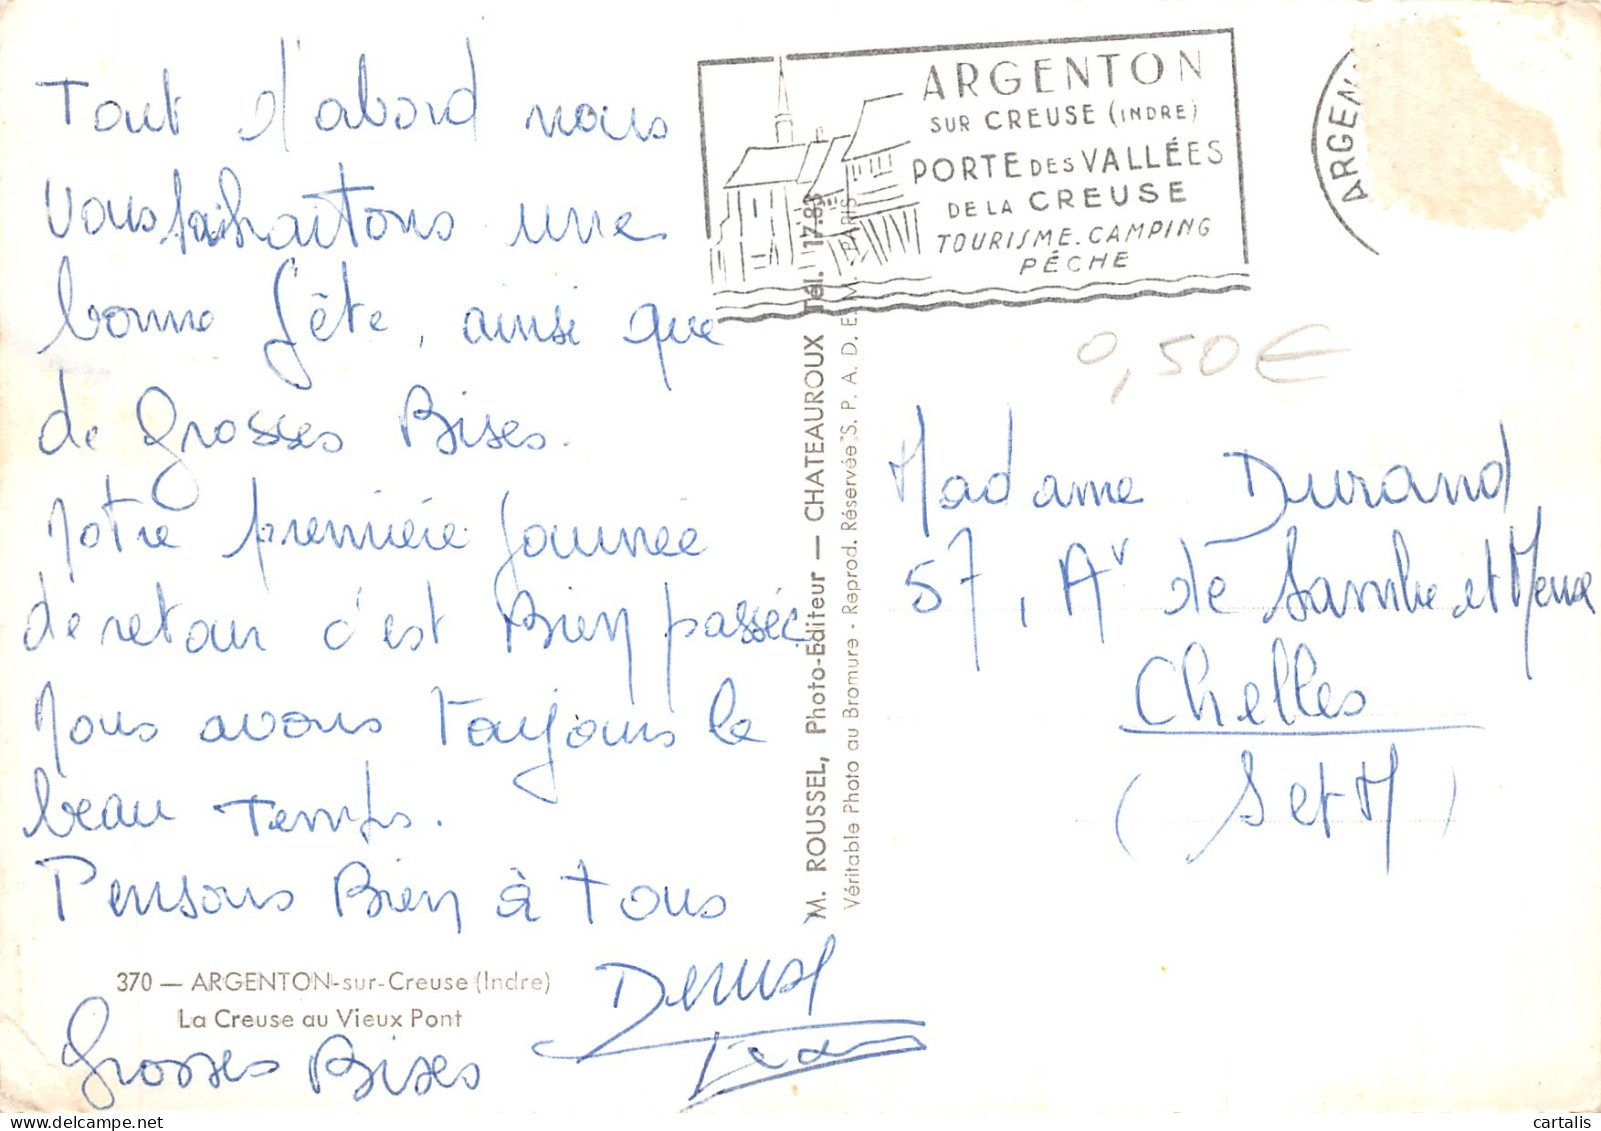 Tout d'abord nous
vous souhaitons une
bonne fête, ainsi que
de grosses Bises.
Notre première journée
de retour c'est Bien passée
Nous avons toujours le
beau temps.
Pensons Bien à tous
370 — ARGENTON-sur-Creuse (Indre)
La Creuse au Vieux Pont
Grosses Bises
Denise
M. ROUSSEL, Photo-Editeur — CHATEAUROUX Tél. 17.83
Véritable Photo au Bromure - Reprod. Réservée S. P. A. D. E. M. PARIS
ARGENTON
SUR CREUSE (INDRE)
PORTE DES VALLÉES
DE LA CREUSE
TOURISME. CAMPING
PÊCHE
ARGEN
0,50€
Madame Durand
57, Av de Sambre et Meuse
Chelles
(S et M)
cartalis